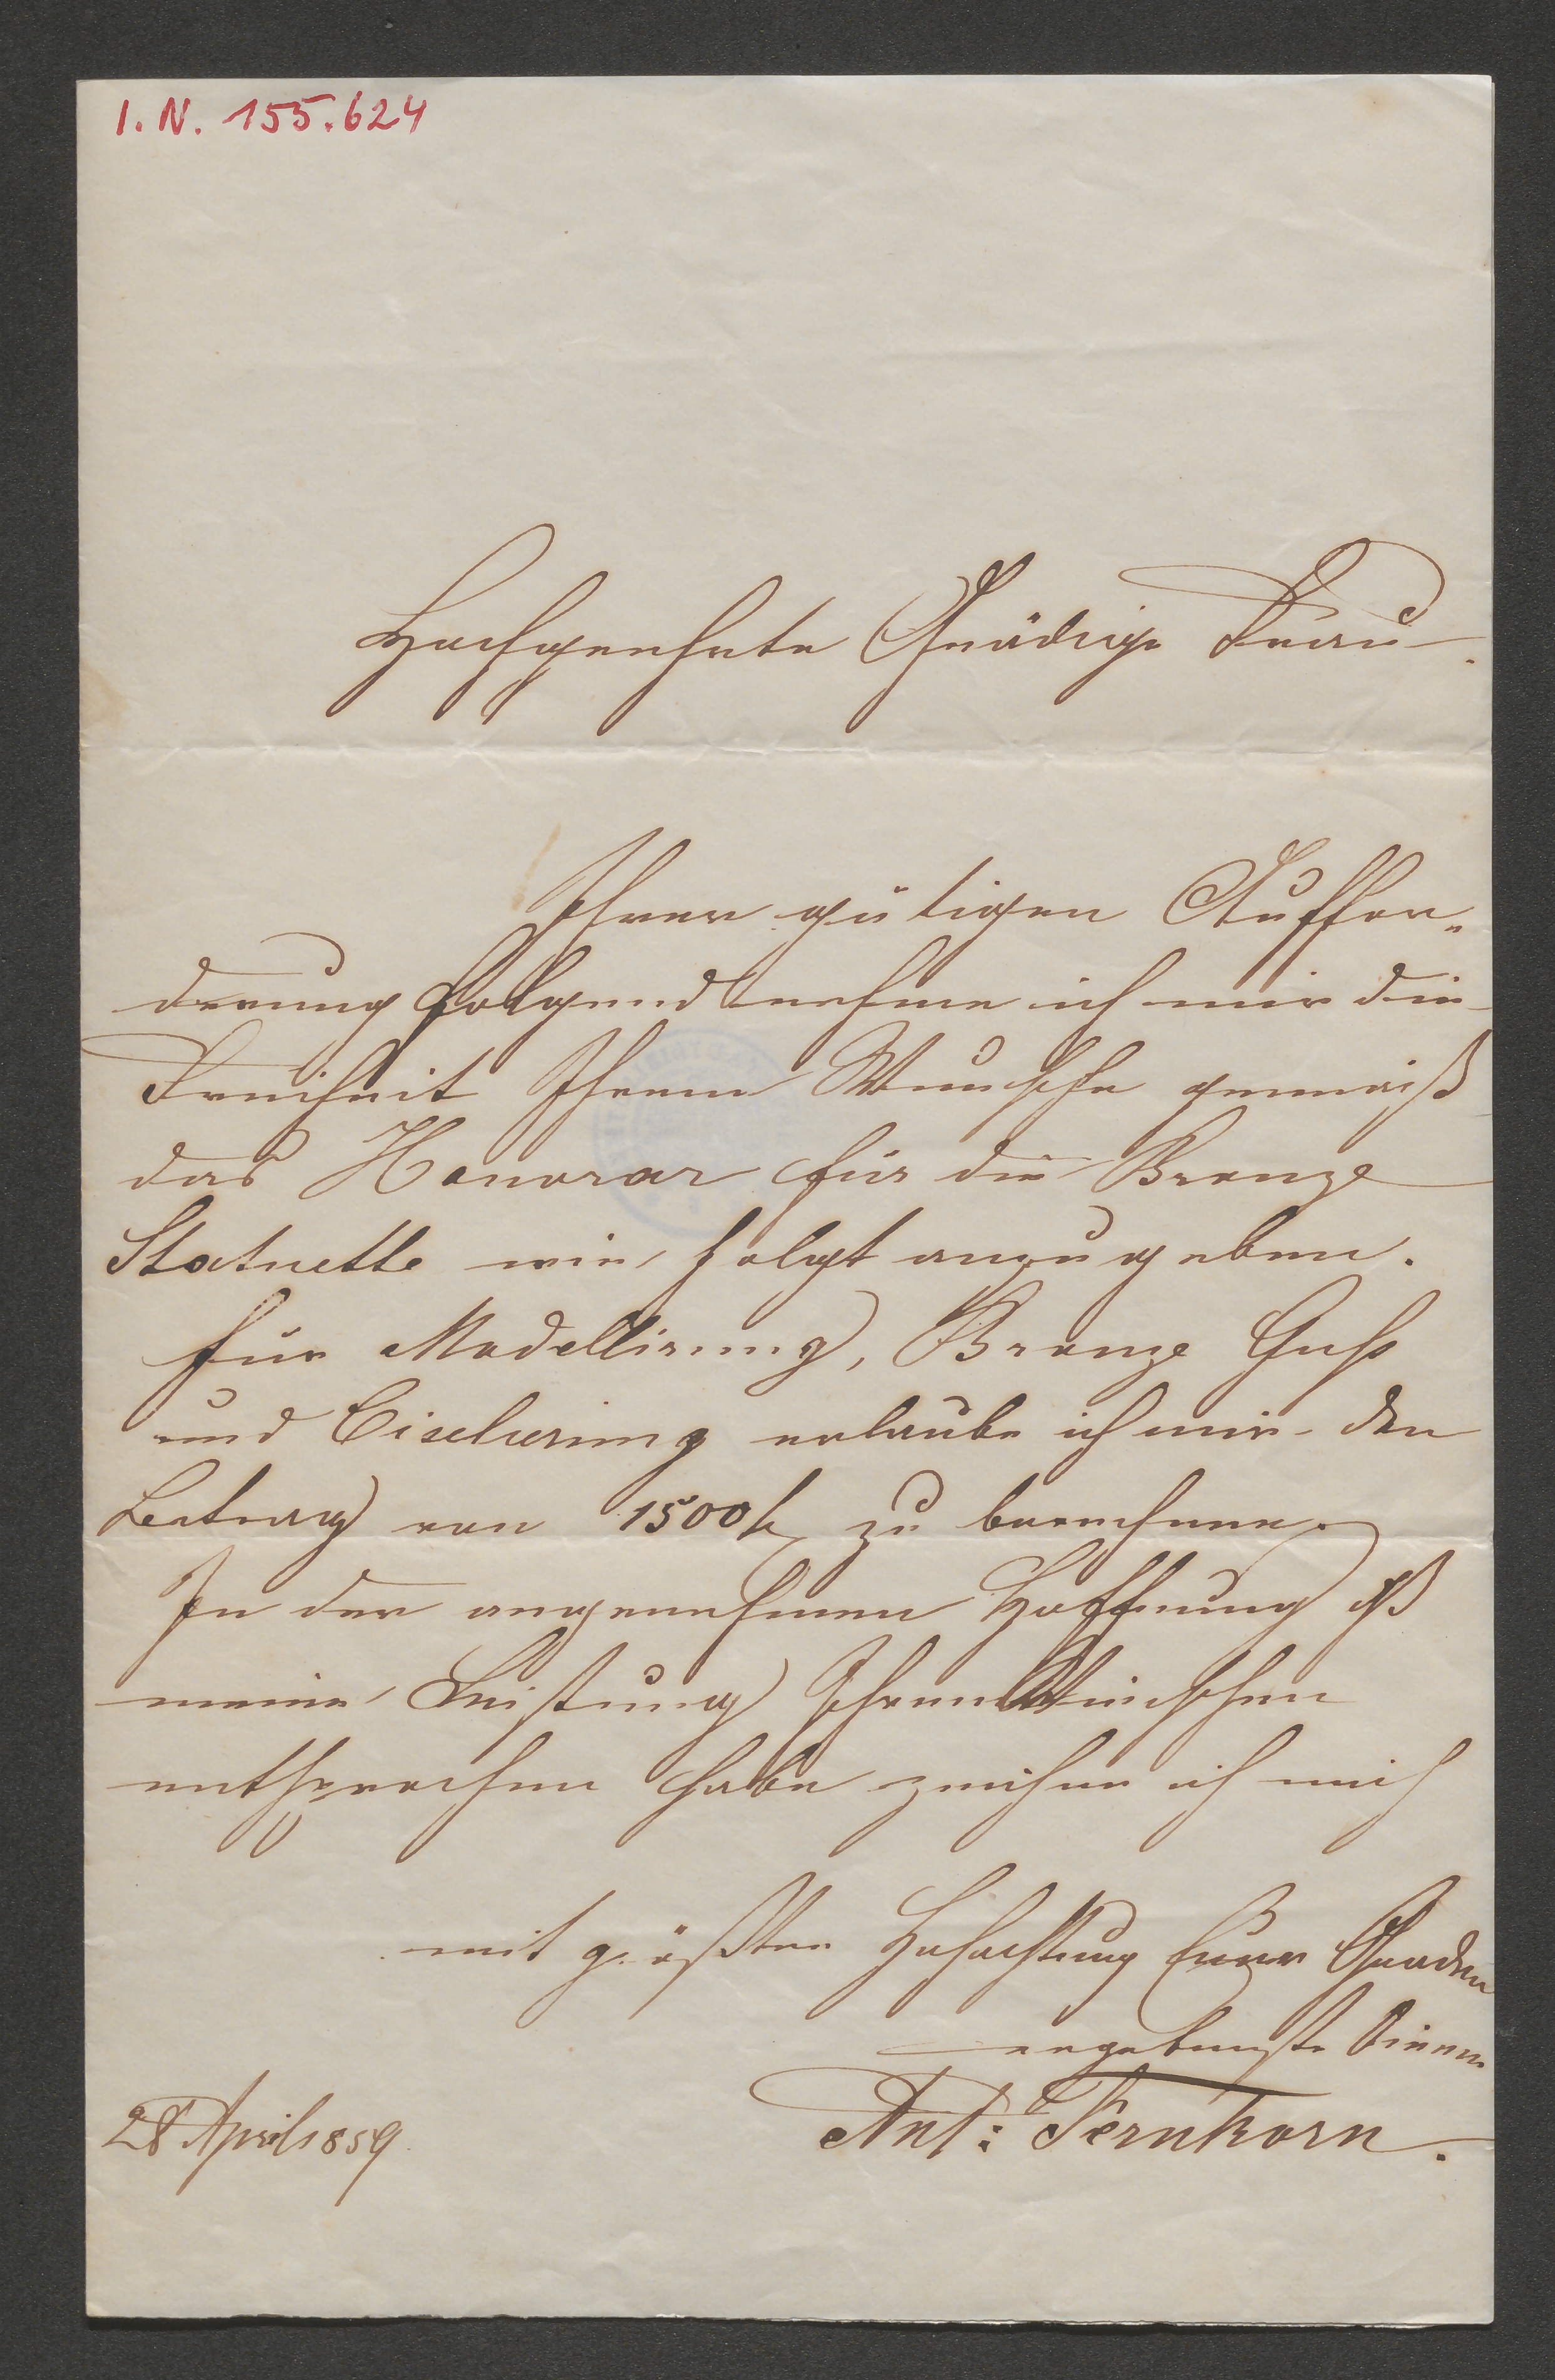 I. N. 155.624
Hochgeehrte Gnädige Frau.
Ihrer gütigen Auffor„
derung folgend nehme ich mir die
Freiheit Ihrem Wunsche gemäß
das Honorar für die Bronze
Statuette wie folgt anzugeben.
für Modellirung, Bronze Guß
und Ciselierung erlaube ich mir den
Betrag von 1500 f. zu berechnen.
In der angenehmen Hoffnung
meine Leistung Ihren Wünschen
entsprochen habe zeichne ich mich
mit größter Hochachtung Euer Gnaden
ergebenster Diener
Ant: Fernkorn.
28 April 1859.